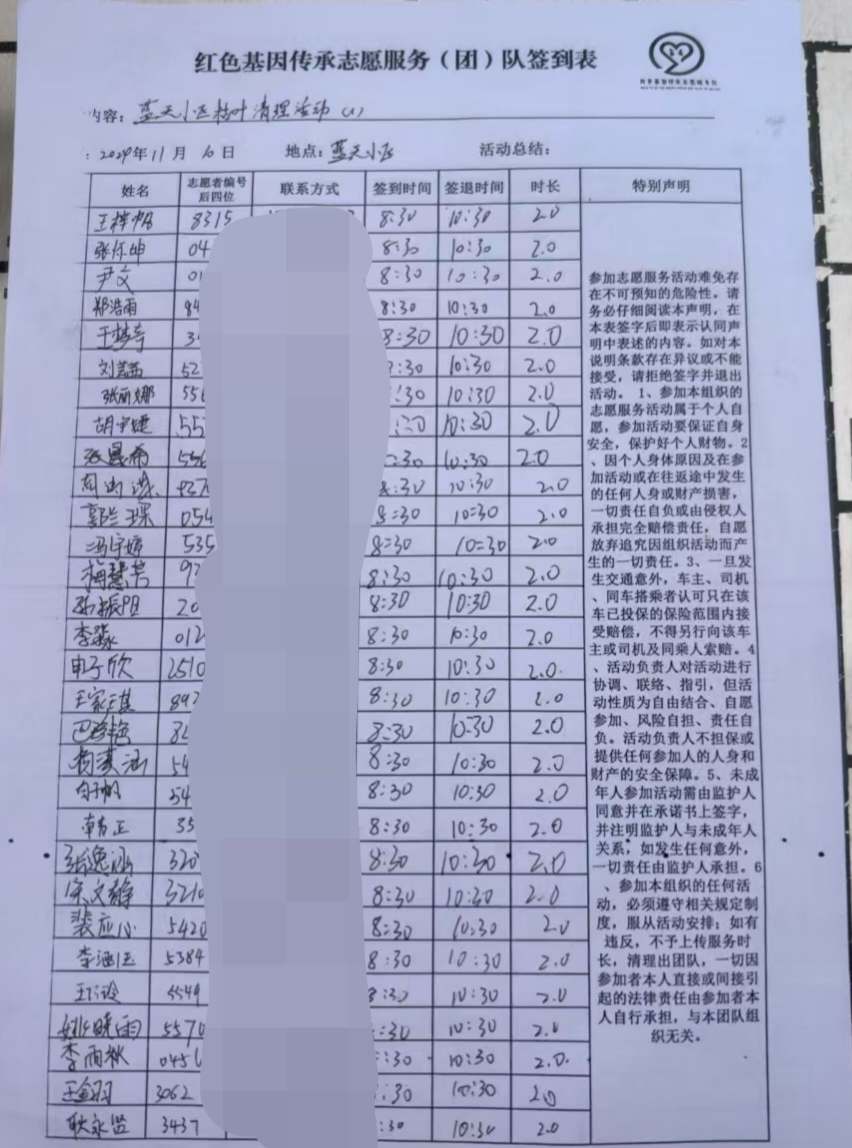 红色基因传承志愿服务（团）队签到表
内容：蓝天小区枯叶清理活动（1）
：2024年11月10日 地点：蓝天小区 活动总结：
姓名 志愿者编号后四位 联系方式 签到时间 签退时间 时长 特别声明
8315 8:30 10:30 2.0
04 8:30 10:30 2.0
尹文 01 8:30 10:30 2.0
郑浩雨 94 8:30 10:30 2.0
3 8:30 10:30 2.0
52 :30 10:30 2.0
张丽娜 556 :30 10:30 2.0
胡宇婕 55 :30 10:30 2.0
张晨希 556 :30 10:30 2.0
8:30 10:30 2.0
郭兰琛 054 8:30 10:30 2.0
冯宇婷 535 8=30 10=30 2.0
梅慧芳 92 8:30 10:30 2.0
20 8:30 10:30 2.0
李淼 012 8:30 10:30 2.0
申子欣 2510 8:30 10:30 2.0
王家琪 892 8:30 10:30 2.0
8:30 10:30 2.0
54 8:30 10:30 2.0
54 8:30 10:30 2.0
韩正 35 8:30 10:30 2.0
张逸涵 320 8:30 10:30 2.0
宋文静 3210 8:30 10:30 2.0
裴应心 5420 8:30 10:30 2.0
5384 8:30 10:30 2.0
5549 8:30 10:30 2.0
姚晓雨 5570 :30 10:30 2.0
李雨秋 045 :30 10:30 2.0
王金羽 3062 :30 10:30 2.0
耿永贤 3437 :30 10:30 2.0
参加志愿服务活动难免存
在不可预知的危险性。请
务必仔细阅读本声明，在
本表签字后即表示认同声
明中表述的内容。如对本
说明条款存在异议或不能
接受，请拒绝签字并退出
活动。1、参加本组织的
志愿服务活动属于个人自
愿，参加活动要保证自身
安全，保护好个人财物。2
、因个人身体原因及在参
加活动或在往返途中发生
的任何人身或财产损害，
一切责任自负或由侵权人
承担完全赔偿责任，自愿
放弃追究因组织活动而产
生的一切责任。3、一旦发
生交通意外，车主、司机
、同车搭乘者认可只在该
车已投保的保险范围内接
受赔偿，不得另行向该车
主或司机及同乘人索赔。4
、活动负责人对活动进行
协调、联络、指引，但活
动性质为自由结合、自愿
参加、风险自担、责任自
负。活动负责人不担保或
提供任何参加人的人身和
财产的安全保障。5、未成
年人参加活动需由监护人
同意并在承诺书上签字，
并注明监护人与未成年人
关系，如发生任何意外，
一切责任由监护人承担。6
、参加本组织的任何活
动，必须遵守相关规定制
度，服从活动安排；如有
违反，不予上传服务时
长，清理出团队，一切因
参加者本人直接或间接引
起的法律责任由参加者本
人自行承担，与本团队组
织无关。